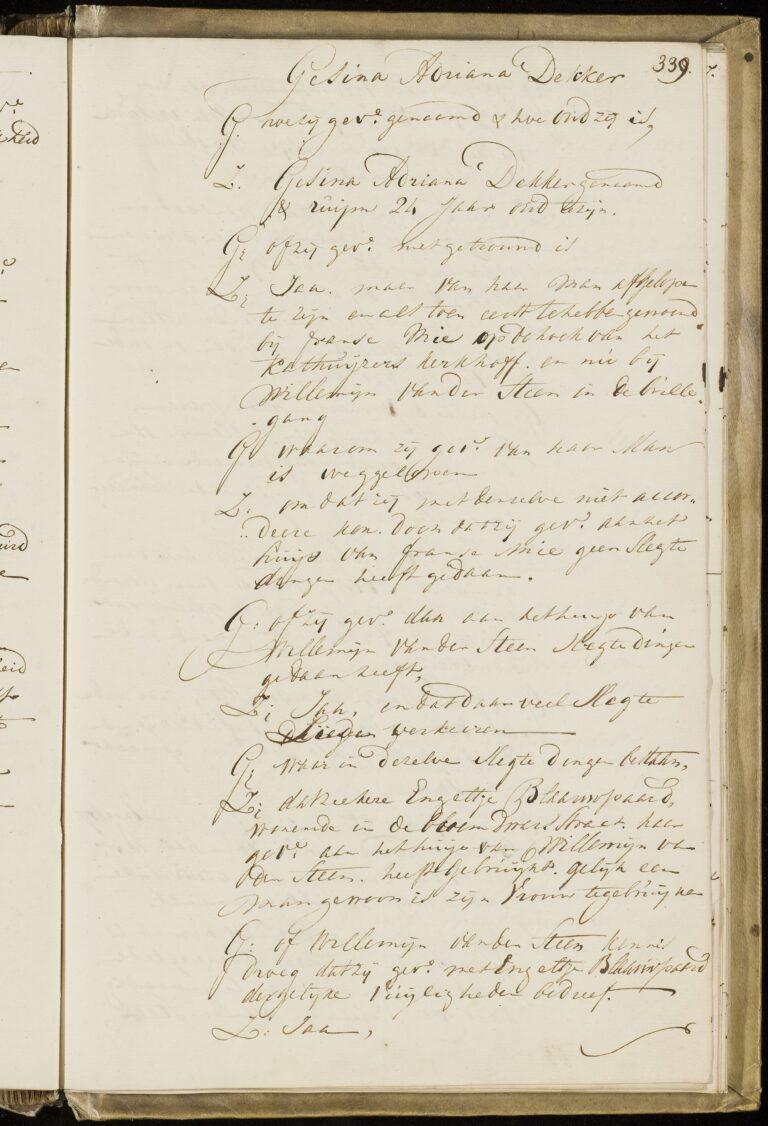 339.
Gesina Adriana Dekker
G. hoe zij gev.e genaamd & hoe oud zij is,
Z. Gesina Adriana Dekker genaamd
& ruijm 24 Jaar oud te zijn.
G: of zij gev.e niet getrouwd is
Z: Jaa. maar van haar man afgelope
te zijn en als toen eerst te hebbe gewoond
bij franse Mie op de hoek van het
Kathuijsers kerkhoff. en nu bij
Willemijn van der Steen in de brille
gang
G waarom zij gev.e van haar Man
is weggeloopen
Z. om dat zij met denselve niet accor-
deere kon. doch dat zij gev.e aan het
huijs van franse Mie geen slegte
dingen heeft gedaan.
G: of zij gev.e dan aan het huijs van
Willemijn van der Steen slegte dingen
gedaan heeft,
Z; Jaa, en dat daar veel slegte
verkeeren
G; waar in dezelve slegte dingen bestaan,
Z; dat zekere Engeltje Blaauwpaard,
wonende in de bloem dwars straat. haar
gev.e aan het huijs van Willemijn van
der Steen. heeft gebruijkt. gelijk een
man gewoon is zijn vrouw te gebruijken
G: of Willemijn van der Steen kennis
droeg dat zij gev.e met Engeltje Blaauwpaard
diergelijke vuijligheden bedreef.
Z: Jaa,